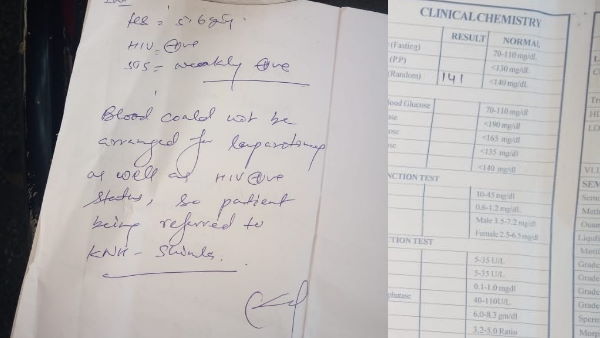 HIV = ⊕ve
= weakly ⊕ve
Blood could not be
arranged for laparotomy
as well as HIV ⊕ve
status, so patient
being referred to
KNH - Shimla.
CLINICAL CHEMISTRY
RESULT NORMAL
(Fasting) 70-110 mg/dl
(P.P) <130 mg/dl
(Random) 141 <140 mg/dl
ood Glucose 70-110 mg/dl
<190 mg/dl
<165 mg/dl
<135 mg/dl
<140 mg/dl
NCTION TEST
10-45 mg/dl
0.6-1.2 mg/dL
Male 3.5-7.2 mg/dl
Female 2.5-6.5 mg/dl
TION TEST
5-35 U/L
5-35 U/L
0.1-1.0 mgdl
40-110U/L
6.0-8.3 gm/dl
3.2-5.0 Ratio
VLD
SEM
Grade
Grade
Grade